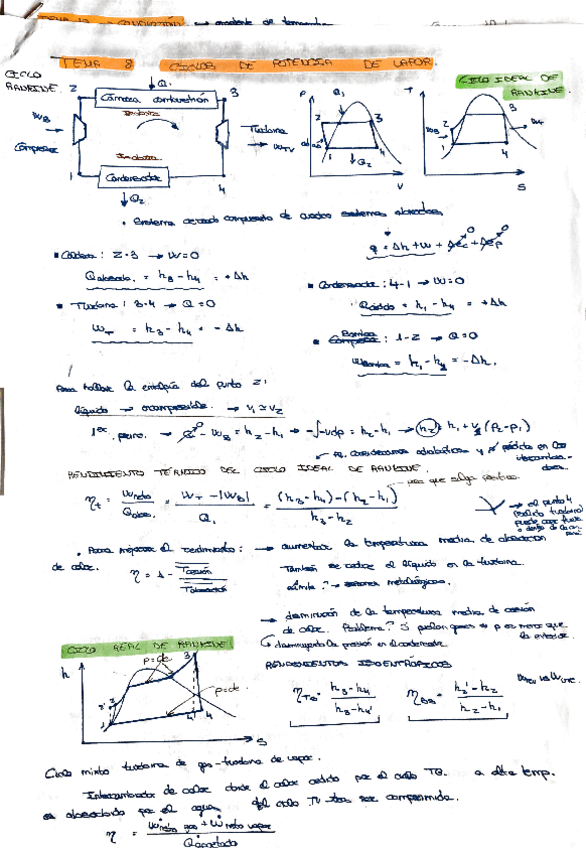 TEMA 8 CICLOS DE POTENCIA DE VAPOR.
CICLO RANKINE.
CICLO IDEAL DE RANKINE.
Cámara combustión
Turbina
Condensador
• Sistema cerrado compuesto de cuatro sistemas abiertos
q = Δh + W + Δec + Δep
• Caldera: 2-3 → W=0
Q absorb. = h3 - h4 = +Δh
• Turbina: 3-4 → Q=0
WT = h3 - h4 = -Δh
• Condensador: 4-1 → W=0
Qcedido = h1 - h4 = +Δh
• Bomba: 1-2 → Q=0
Wbomba = h1 - h2 = -Δh.
Para hallar la entalpía del punto 2:
líquido → incompresible. → v1 ≃ v2
1er princ. → Q - WB = h2 - h1 → -∫-vdp = h2 - h1 → h2 = h1 + v1 (P2 - P1)
RENDIMIENTO TÉRMICO DEL CICLO IDEAL DE RANKINE.
para que salga positivo
ηt = Wneto / Qabs. = WT - |WB| / Q1 = (h3 - h4) - (h2 - h1) / h3 - h2
→ el punto 4 (salida turbina) puede caer fuera o dentro de la campana
• Para mejorar el rendimiento: → aumentar la temperatura media de absorción de calor.
η = 1 - Tcesión / Tabsorción
También se reduce el líquido en la turbina.
Límite? → metalúrgicos.
→ disminución de la temperatura media de cesión de calor. Problema?
↳ disminuyendo la presión en el condensador.
CICLO REAL DE RANKINE
RENDIMIENTOS ISOENTRÓPICOS
h
P=cte
P=cte.
S
ηTB = h3 - h4 / h3 - h4'
Ciclo mixto turbina de gas-turbina de vapor.
Intercambiador de calor donde el calor cedido por el ciclo TG. a alta temp.
es absorbido por el agua del ciclo TV tras ser comprimida.
η = Wneto gas + Wneto vapor / Qaportado